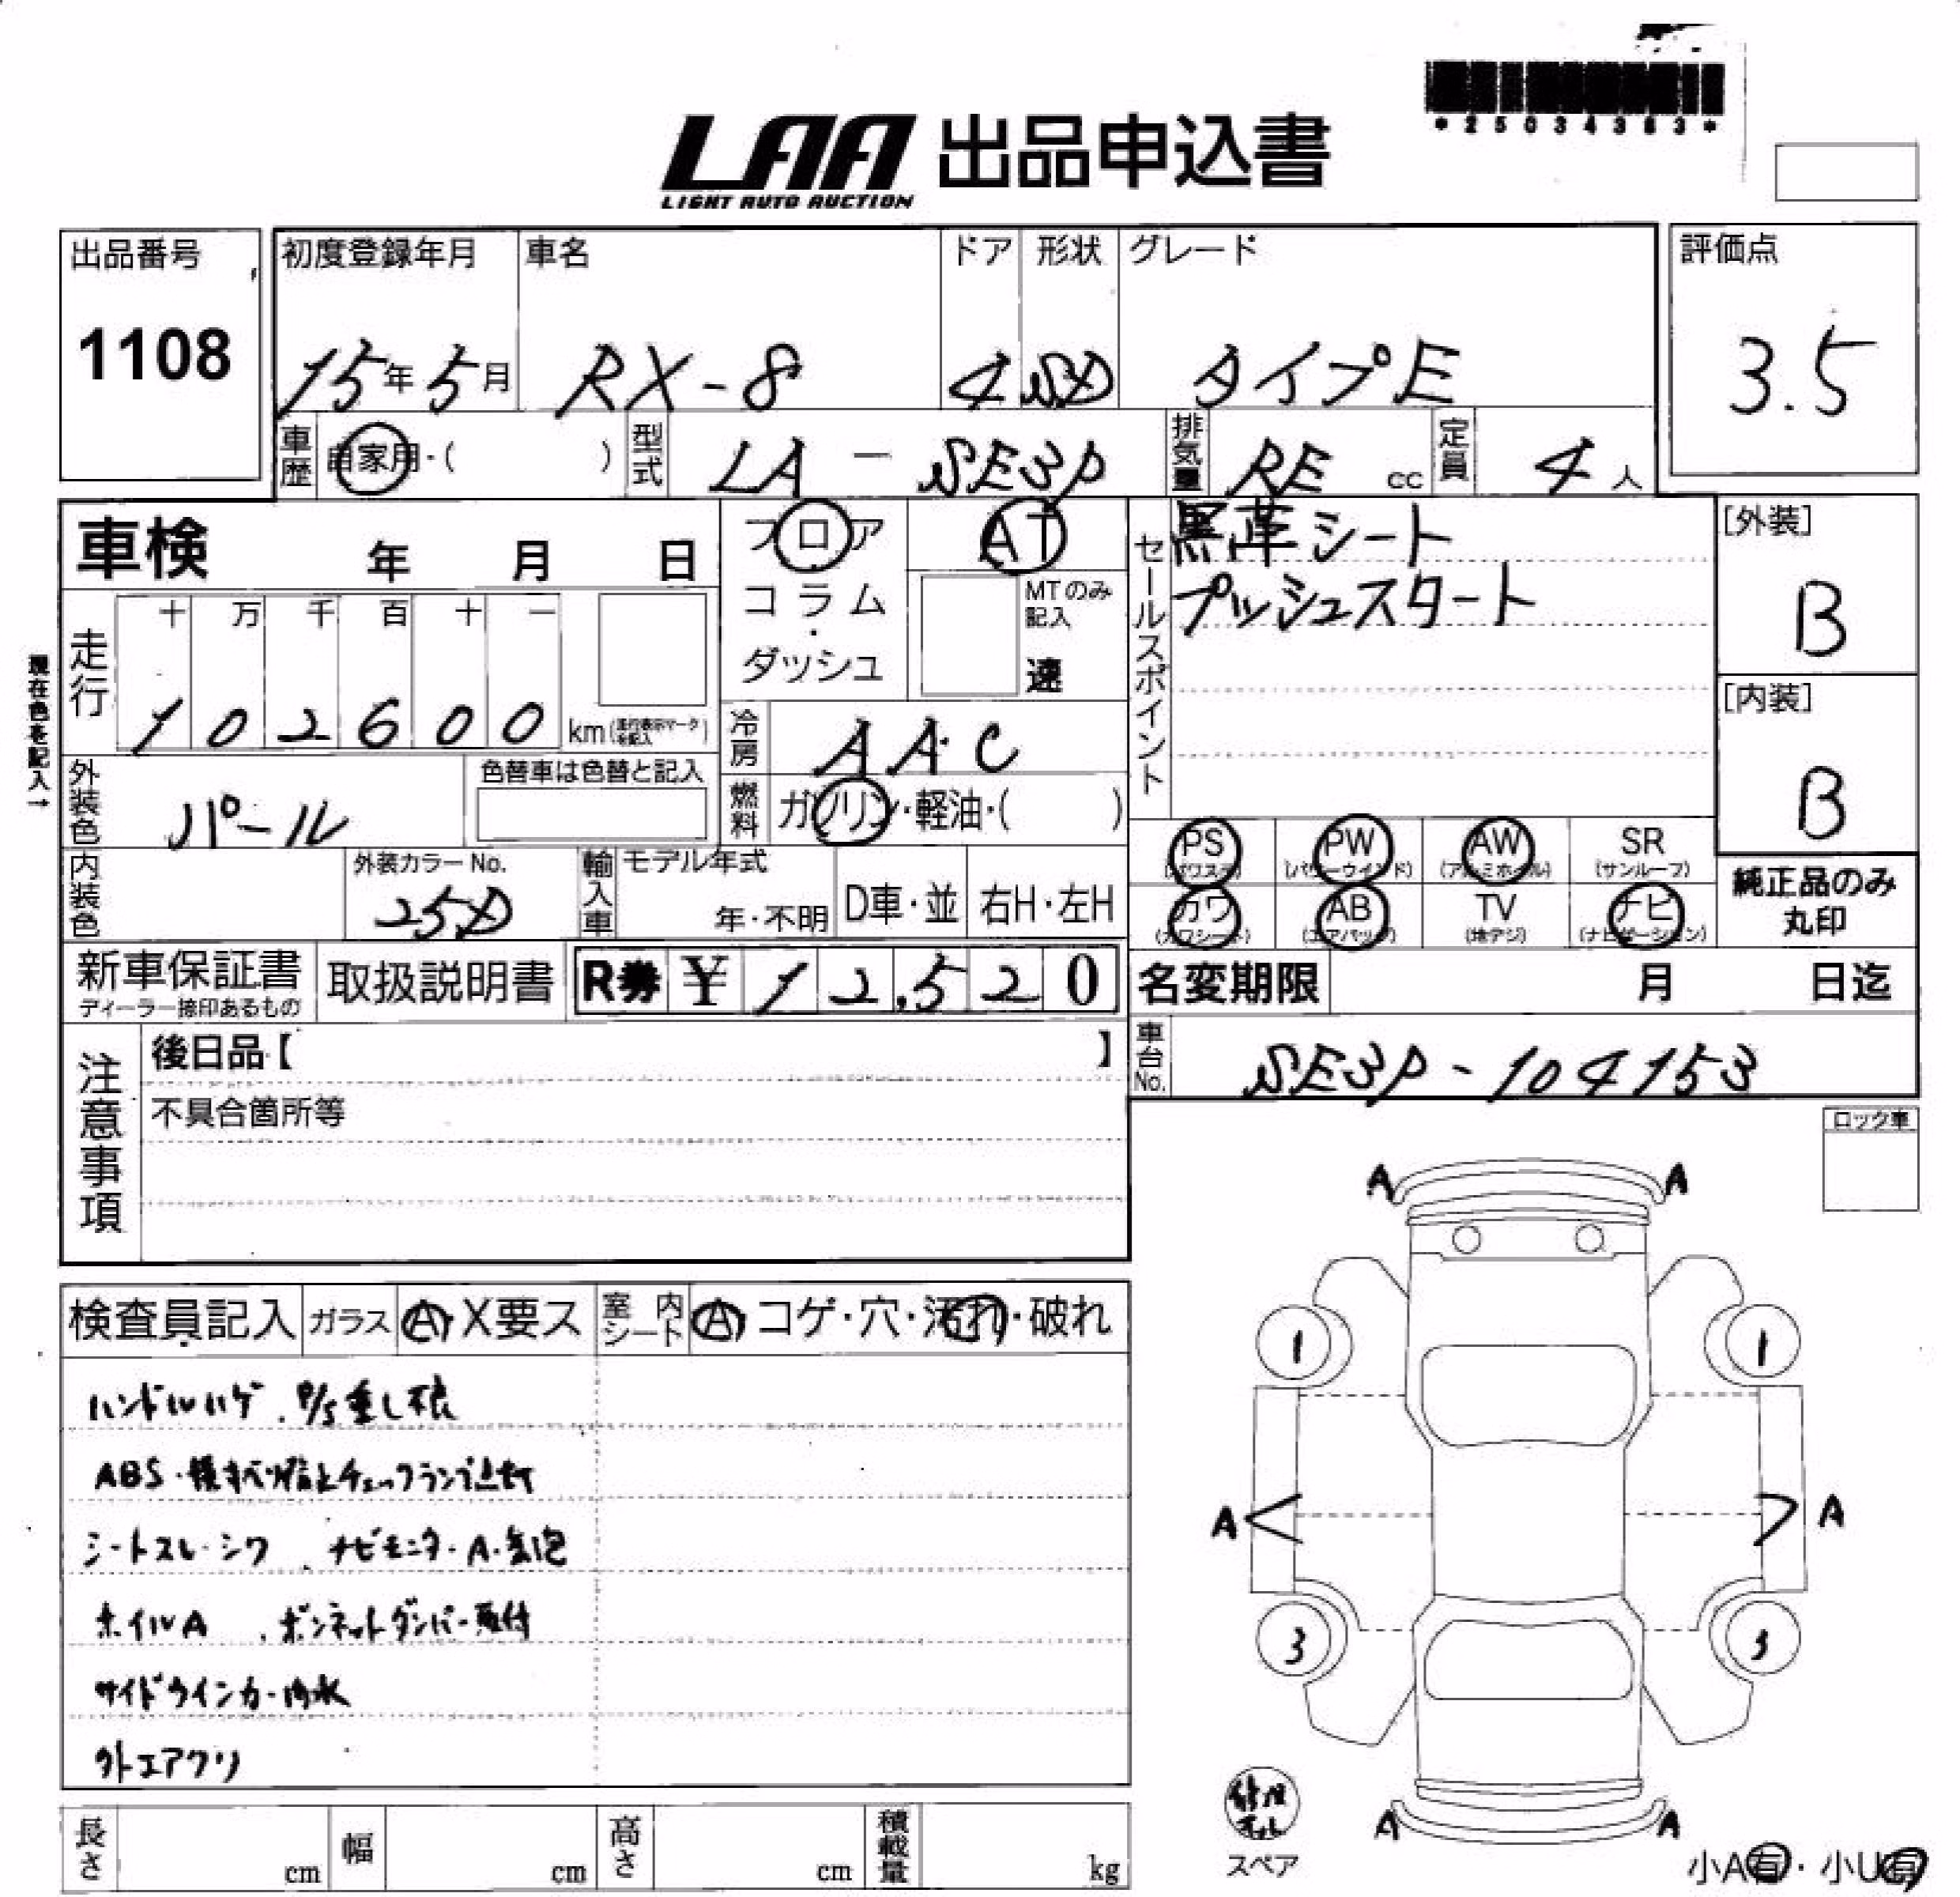 *25034383*
LAA 出品申込書
LIGHT AUTO AUCTION
出品番号
1108
初度登録年月
15年5月
車名
RX-8
ドア
4
形状
SD
グレード
タイプE
評価点
3.5
車歴
自家用・( )
型式
LA - SE3P
排気量
RE cc
定員
4人
車検 年 月 日
フロア
・
コラム
・
ダッシュ
AT
MTのみ記入
速
セールスポイント
黒革シート
プッシュスタート
[外装]
B
[内装]
B
現在色を記入→
走行
十 万 千 百 十 一
1 0 2 6 0 0 km(走行表示マークを記入)
冷房
AAC
外装色
パール
色替車は色替と記入
燃料
ガソリン・軽油・( )
PS
(パワステ)
PW
(パワーウインド)
AW
(アルミホイル)
SR
(サンルーフ)
カワ
(カワシート)
AB
(エアバッグ)
TV
(地デジ)
ナビ
(ナビゲーション)
純正品のみ
丸印
内装色
外装カラーNo.
25D
輸入車
モデル年式
年・不明
D車・並
右H・左H
新車保証書
ディーラー捺印あるもの
取扱説明書
R券 ¥ 12,520
名変期限 月 日迄
注意事項
後日品【 】
不具合箇所等
車台No.
SE3P-104153
ロック車
検査員記入
ガラス
A・X要ス
室内シート
A・コゲ・穴・汚れ・破れ
ハンドルハゲ . P/S重し不良
ABS・横すべり防止チェックランプ点灯
シートスレ・シワ . ナビモニター・A・気泡
ホイルA . ボンネットダンパー取付
サイドウインカー内水
外エアクリ
A A
1 1
A A
3 3
A A
スペア
小A有・小U有
長さ cm
幅 cm
高さ cm
積載量 kg